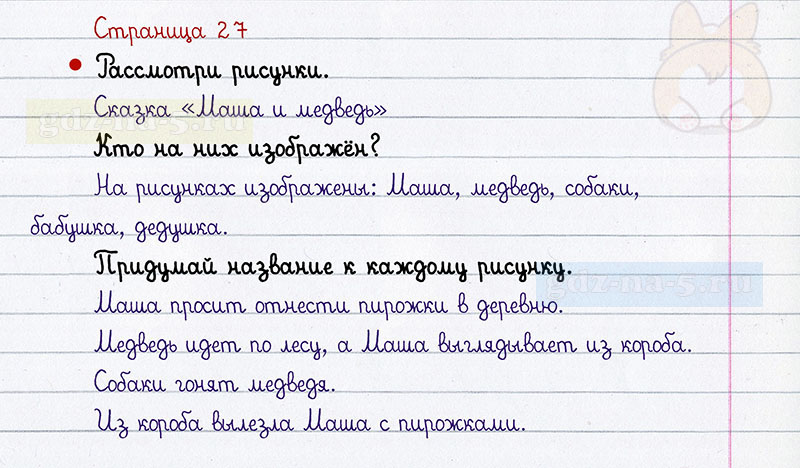 Страница 27
Рассмотри рисунки.
Сказка «Маша и медведь»
gdz-na-5.ru
Кто на них изображён?
На рисунках изображены: Маша, медведь, собаки,
бабушка, дедушка.
Придумай название к каждому рисунку.
gdz-na-5.ru
Маша просит отнести пирожки в деревню.
Медведь идет по лесу, а Маша выглядывает из короба.
Собаки гонят медведя.
Из короба вылезла Маша с пирожками.